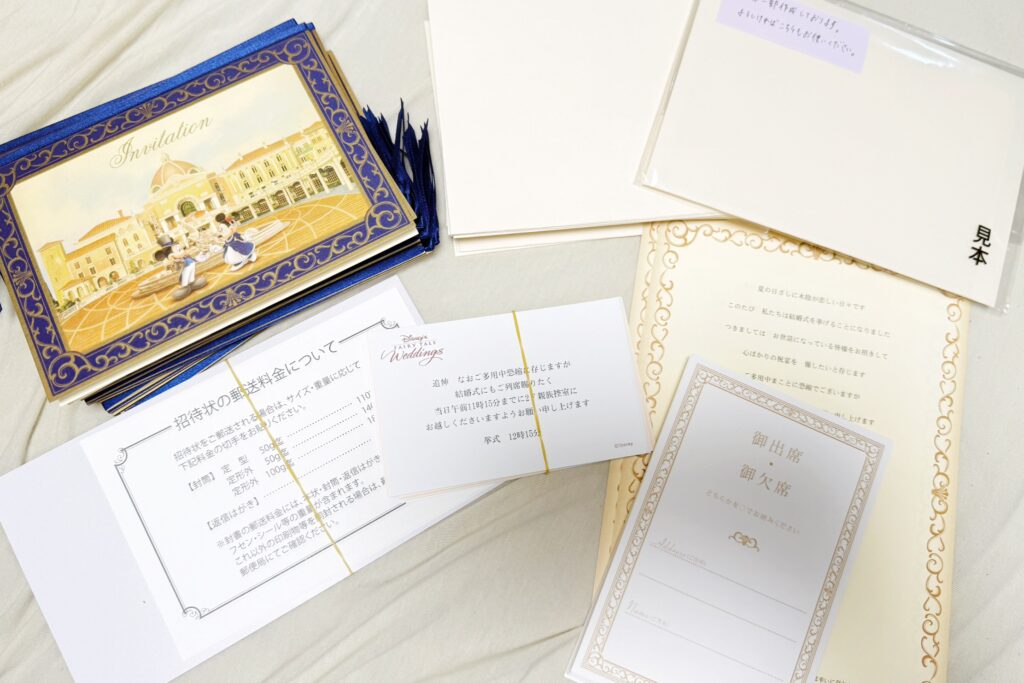 Invitation
一部作成しております。
よろしければこちらもお使いください。
見本
招待状の郵送料金について
招待状をご郵送される場合は、サイズ・重量に応じて
下記料金の切手をお貼りください。
【封筒】 定 型 50g迄 110
定形外 50g迄 140
定形外 100g迄
【返信はがき】
※封書の郵送料金には、本状・封筒・返信はがき
フセン・シール等の重量が含まれます。
これ以外の印刷物等を同封される場合は、
郵便局にてご確認ください。
Disney's
FAIRY TALE
Weddings
追伸 なおご多用中恐縮に存じますが
結婚式にもご列席賜りたく
当日午前11時15分までに2階親族控室に
お越しくださいますようお願い申し上げます
挙式 12時15分
©Disney
夏の日ざしに木陰が恋しい日々です
このたび 私たちは結婚式を挙げることになりました
つきましては お世話になっている皆様をお招きして
心ばかりの祝宴を 催したいと存じます
多用中まことに恐縮でございますが
申し上げます
御出席
・
御欠席
どちらかを○でお囲みください
Address ご住所
Name ご芳名